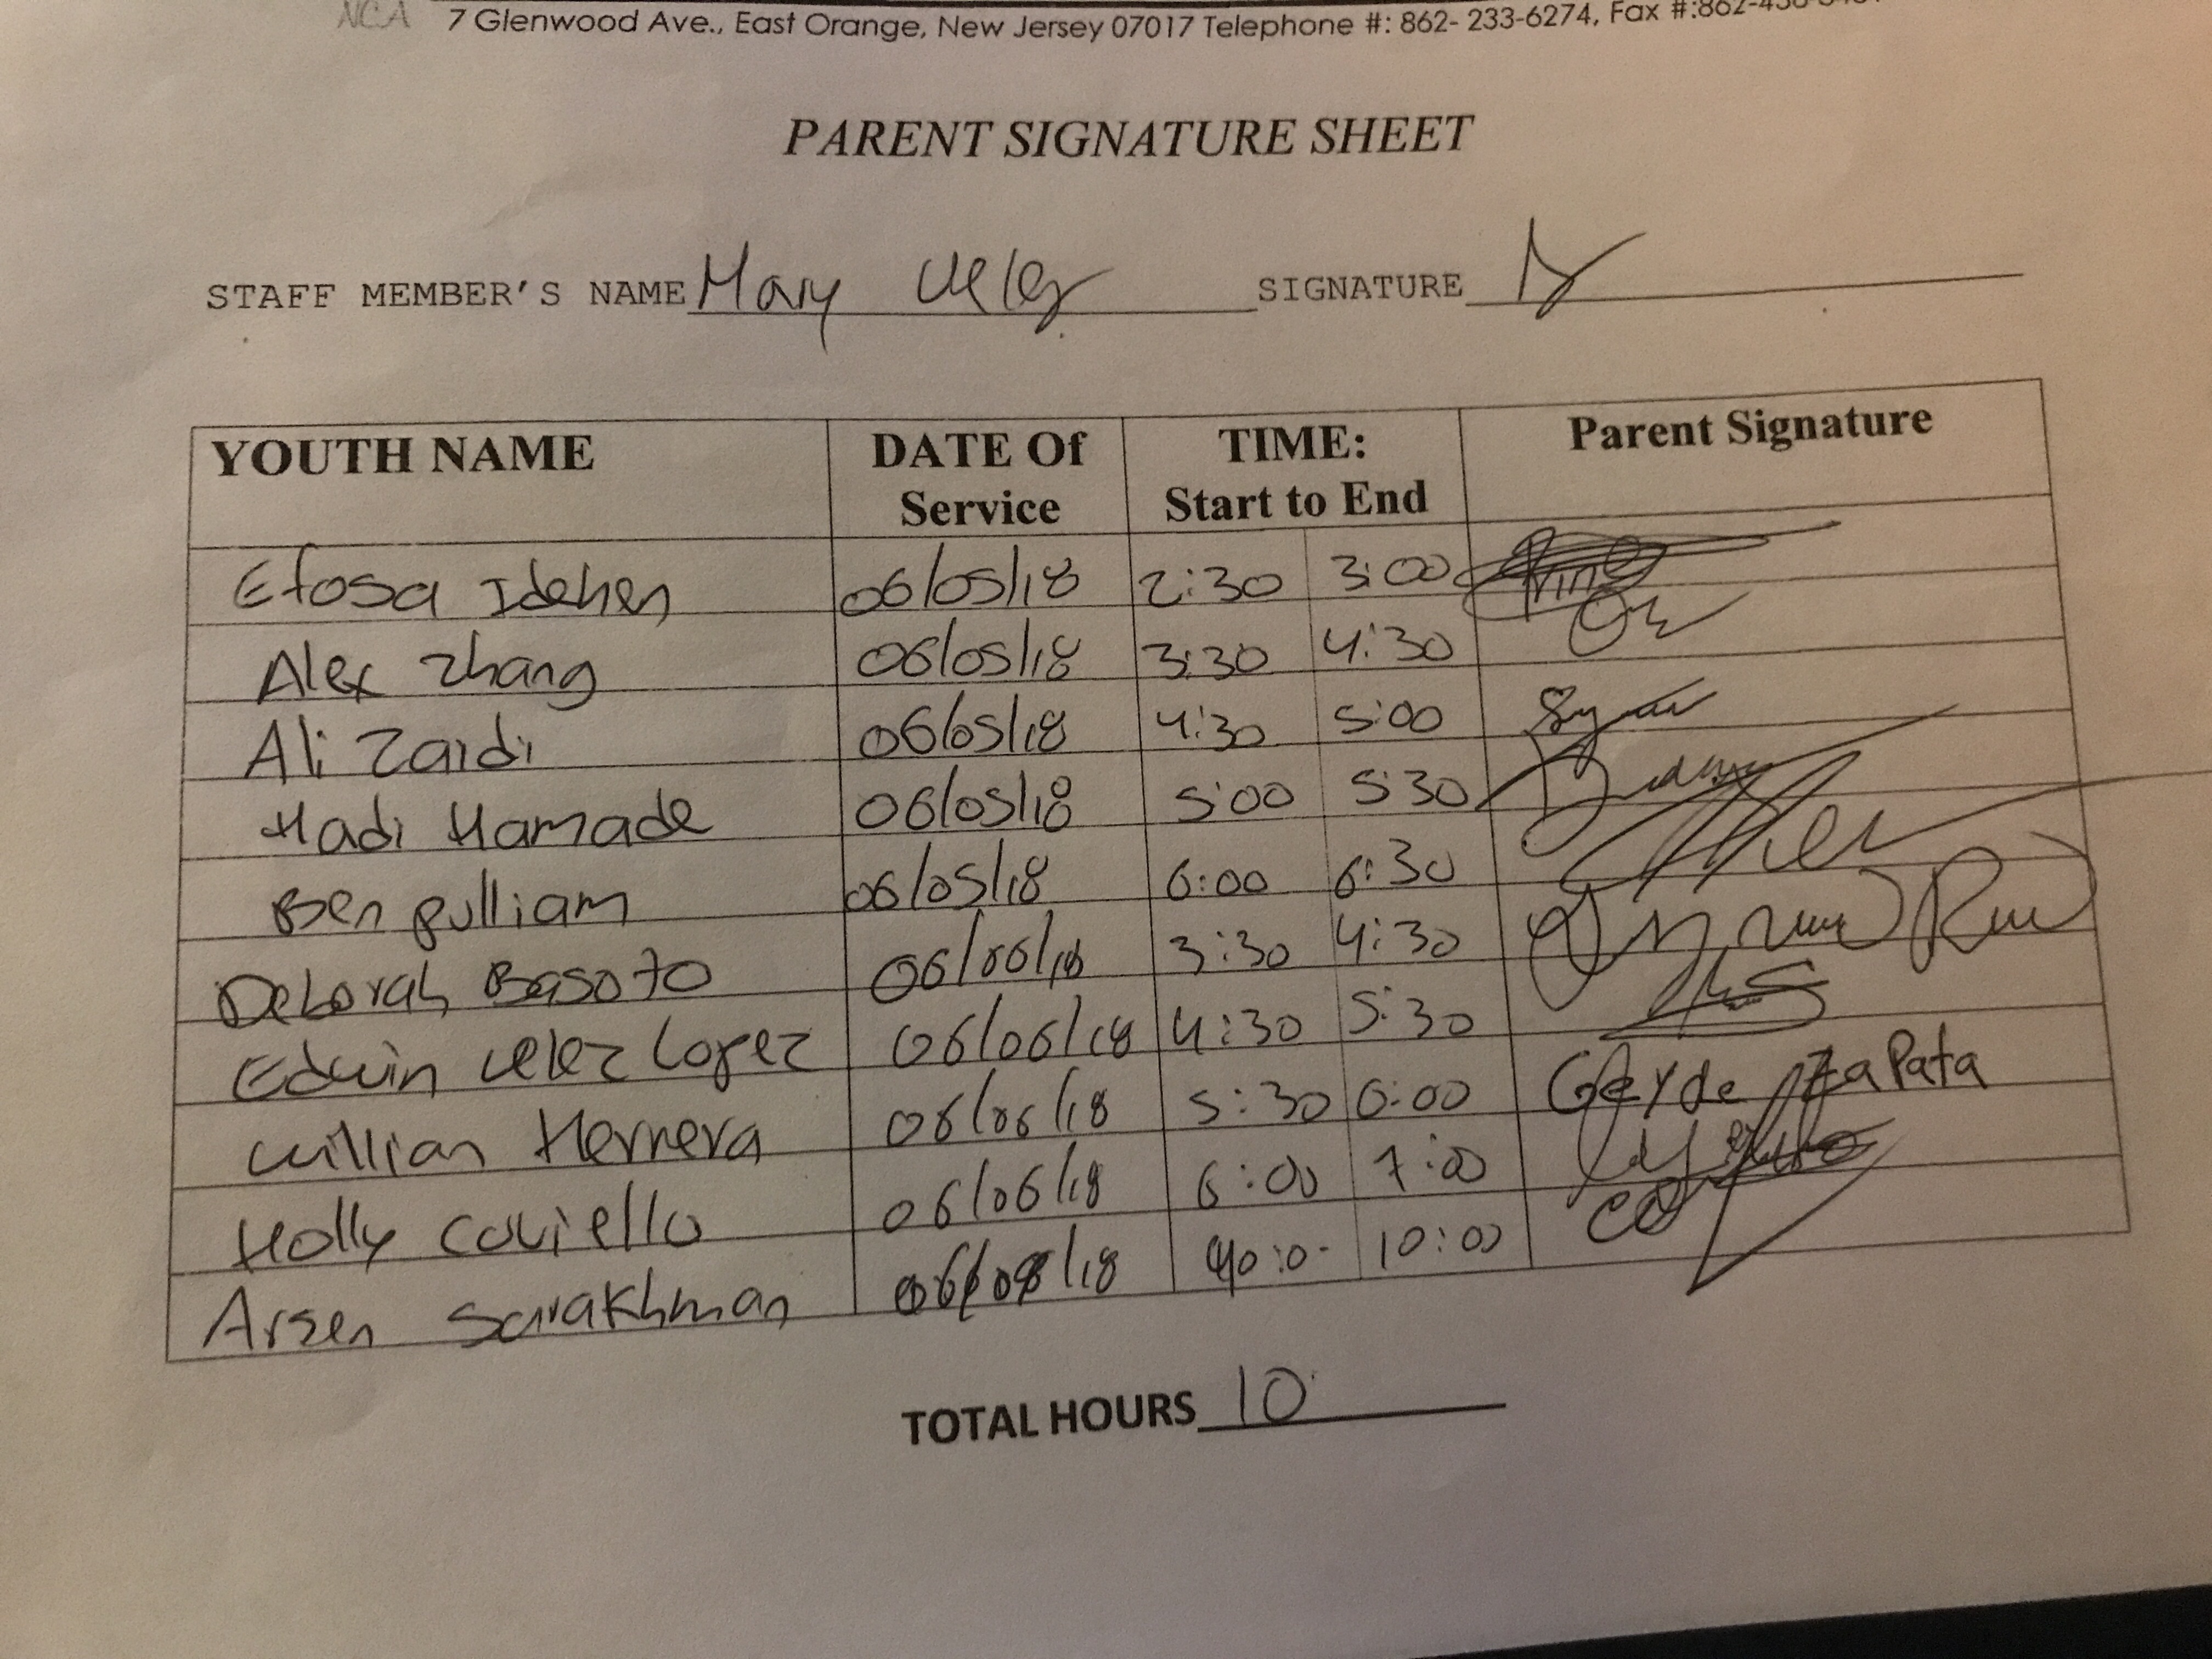 NCA 7 Glenwood Ave., East Orange, New Jersey 07017 Telephone #: 862- 233-6274, Fax #:862-
PARENT SIGNATURE SHEET
STAFF MEMBER'S NAME Mary SIGNATURE
YOUTH NAME DATE Of Service TIME: Start to End Parent Signature
Efosa Idehen 06/05/18 2:30 3:00
Alex Zhang 06/05/18 3:30 4:30
Ali Zaidi 06/05/18 4:30 5:00
Hadi Hamade 06/05/18 5:00 5:30
Ben pulliam 06/05/18 6:00 6:30
Deborah Basoto 06/06/18 3:30 4:30
Edwin Velez Lopez 06/06/18 4:30 5:30
William Herrera 06/06/18 5:30 6:00 Geyde Zapata
Holly Coviello 06/06/18 6:00 7:00
Arsen Sarakhman 10:00
TOTAL HOURS 10